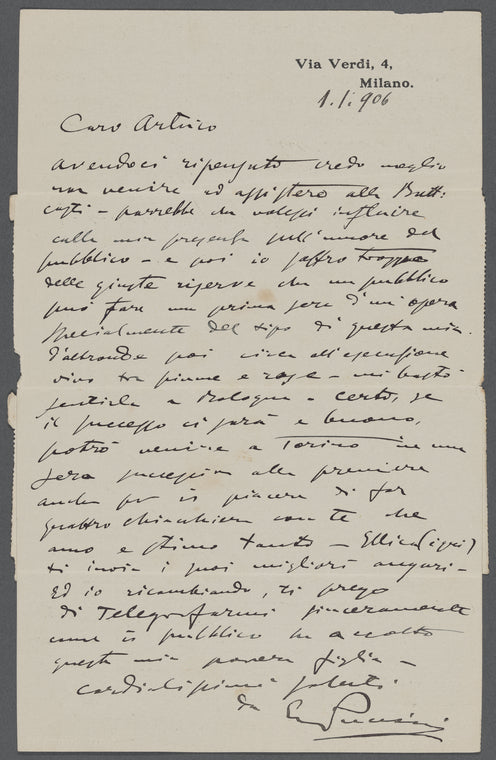 Via Verdi, 4,
Milano.
1.1.906
Caro Arturo
avendoci ripensato credo meglio
non venire ad assistere alla Butt:
costì – parrebbe che volessi influire
colla mia presenza sull'umore del
pubblico – e poi io soffro troppo
delle giuste riserve che un pubblico
può fare una prima sera d'un'opera
specialmente del tipo di questa mia.
d'altronde poi circa all'esecuzione
vivo tra piume e rose – mi bastò
sentirla a Bologna – certo, se
il successo ci sarà e buono,
potrò venire a Torino in una
sera successiva alla première
anche per il piacere di far
quattro chiacchiere con te che
amo e stimo tanto –
ti invia i suoi migliori auguri –
Ed io ricambiando, ti prego
di Telegrafarmi sinceramente
come il pubblico ha accolto
questa mia povera figlia –
cordialissimi saluti
da Puccini